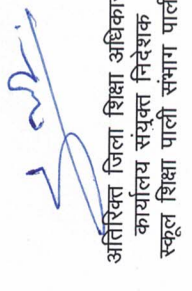 अतिरिक्त जिला शिक्षा अधिकारी
कार्यालय संयुक्त निदेशक
स्कूल शिक्षा पाली संभाग पाली